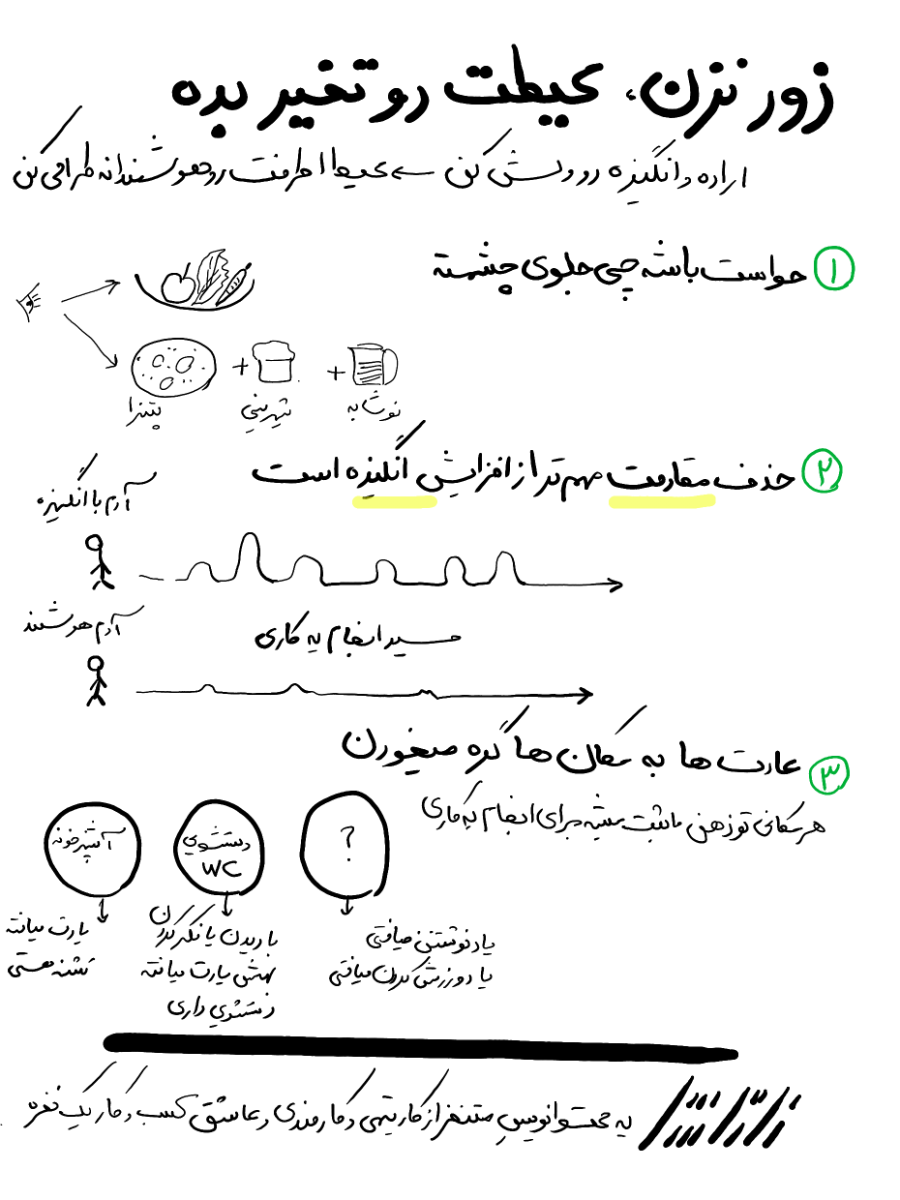 زور نزن، محیطت رو تغییر بده
اراده و انگیزه رو ولش کن محیط اطرافت رو هوشمندانه طراحی کن
۱ حواست باشه چی جلوی چشمته
پیتزا + شیرینی + نوشابه
۲ حذف مقاومت مهم تر از افزایش انگیزه است
آدم با انگیزه
مسیر انجام یه کاری
آدم هوشمند
۳ عادت ها به مکان ها گره میخورن
هر مکانی تو ذهن ما ثبت میشه برای انجام یه کاری
؟
یاد نوشتن میافتی
یا دو ورزش کردن میافتی
دستشویی
WC
با دیدن یا فکر کردن
بهش یادت میافته
دستشویی داری
آشپزخونه
یادت میافته
تشنه هستی
یه محتوانویسِ متنفر از کار تیمی و کارمندی و عاشق کسب و کار یک نفره